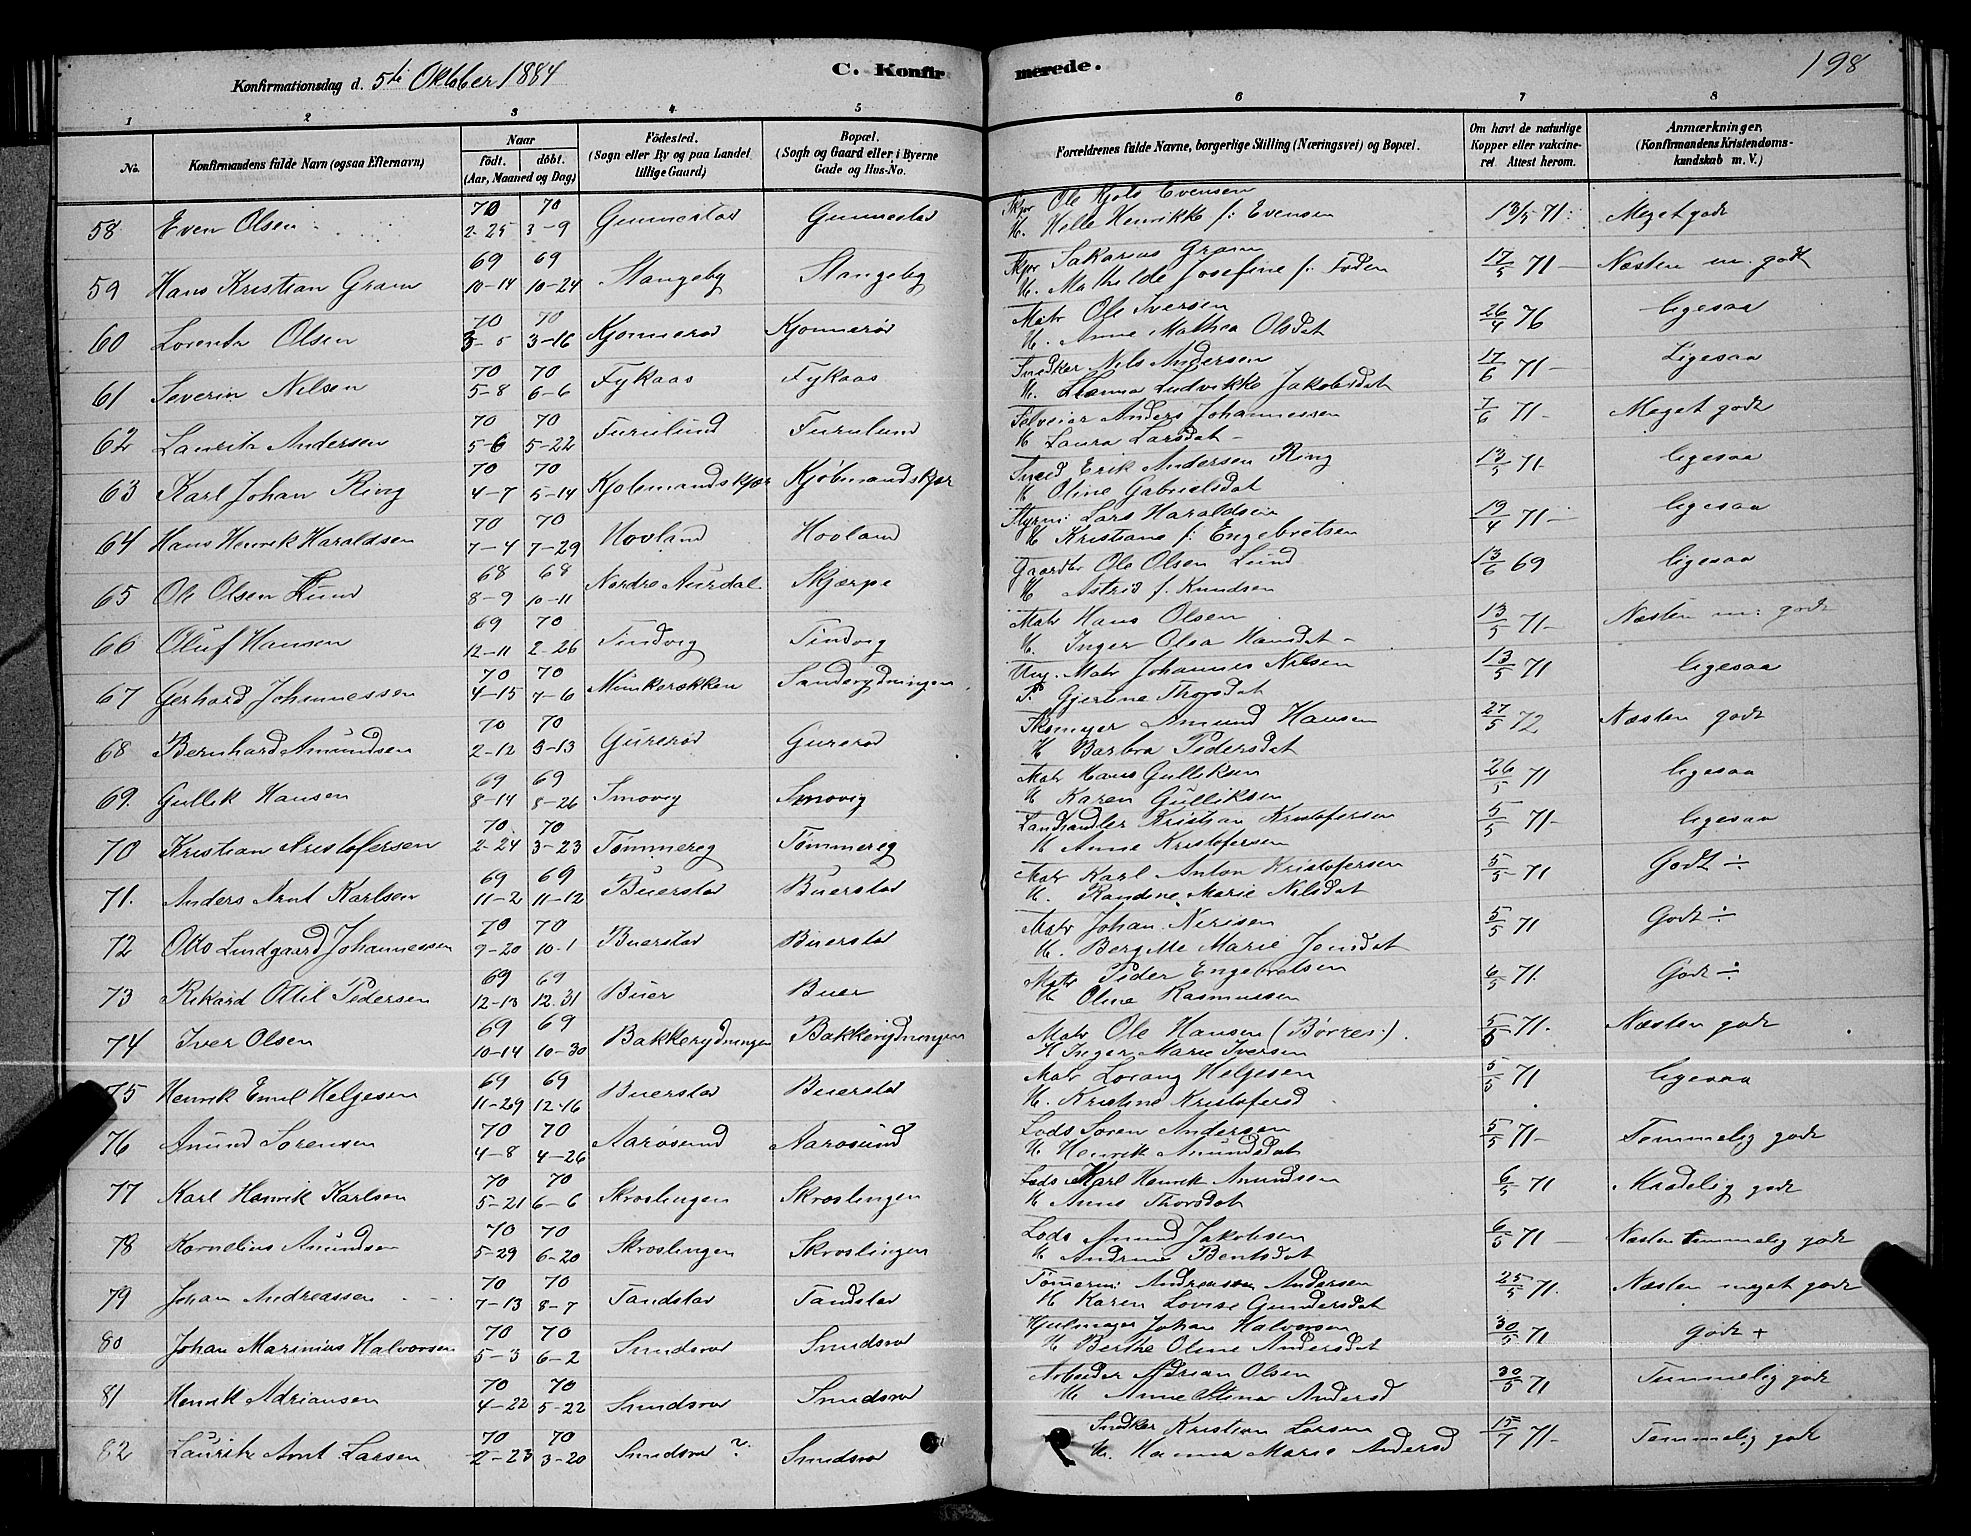 198
Konfirmationsdag d. 5te Oktober 1884 C. Konfirmerede.
1 2 3 4 5 6 7 8
No. Konfirmandens fulde Navn (ogsaa Efternavn) Naar født. døbt. (Aar, Maaned og Dag) Födested. (Sogn eller By og paa Landet tillige Gaard) Bopæl. (Sogn og Gaard eller i Byerne Gade og Hus-No. Forældrenes fulde Navne, borgerlige Stilling (Næringsvei) og Bopæl. Om havt de naturlige Kopper eller vakcineret. Attest herom. Anmærkninger. (Konfirmandens Kristendomskundskab m. V.)
58 Even Olsen 70 2-25 70 3-9 Gunnestad Gunnestad Skpr Ole Kjels Evensen H. Helle Henrikke f: Evensen 13/5 71 Meget godt
59 Hans Kristian Gram 69 10-14 69 10-24 Stangeby Stangeby Skpr Sakarius Gram H. Mathilde Josefine f. Foden 17/5 71 Næsten m. godt
60 Lorents Olsen 70 3-5 70 3-16 Kjonnerød Kjonnerød Matr Ole Iversen H. Anne Mathea Olsdat 26/4 76 ligesaa
61 Severin Nilsen 70 5-8 70 6-6 Fykaas Fykaas Snedker Nils Andersen H. Hanna Ludvikke Jakobsdat 17/6 71 Ligesaa
62 Lauritz Andersen 70 5-6 70 5-22 Furulund Furulund Selveier Anders Johannessen H Laura Larsdat 7/6 71 Meget godt
63 Karl Johan Ring 70 4-7 70 5-14 Kjobmandskjær Kjøbmandskjær Smed Erik Andersen Ring H Oline Gabrielsdat 13/5 71 ligesaa
64 Hans Henrik Haraldsen 70 7-4 70 7-29 Hovland Hovland Styrm: Lars Haraldsen H Kristiane f: Engebretsen 19/4 71 ligesaa
65 Ole Olsen Lund 68 8-9 68 10-11 Nordre Aurdal Skjærpe Gaardbr Ole Olsen Lund H Astrid f. Knudsen 13/6 69 ligesaa
66 Oluf Hansen 69 12-11 70 2-26 Tindvig Tindvig Matr Hans Olsen H. Inger Olea Hansdat 13/5 71 Næsten m: godt
67 Gerhard Johannessen 70 4-15 70 7-6 Munkerækken Sanderydningen Ung. Matr Johannes Nilsen P. Gjertine Thorsdat 13/5 71 ligesaa
68 Bernhard Amundsen 70 2-12 70 3-13 Gurerød Gurerød Skomager Amund Hansen H Barbra Pedersdat 27/5 72 Næsten godt
69. Gullik Hansen 69 8-14 69 8-26 Smovig Smovig Matr Hans Gulliksen H Karen Gulliksen 26/5 71 ligesaa
70 Kristian Kristofersen 70 2-24 70 3-23 Tømmereg Tømmereg Landhandler Kristian Kristofersen H Anne Kristofersen 5/5 71 ligesaa
71. Anders Arnt Karlsen 69 11-2 69 11-12 Buerstad Buerstad Matr Karl Anton Kristofersen H. Randine Marie Nilsdat 5/5 71 Godt ÷
72 Otto Lindgaard Johannessen 70 9-20 70 10-1 Buerstad Buerstad Matr Johan Nerisen H. Bergitte Marie Jensdat 5/5 71 Godt ÷
73 Rikard Ottil Pedersen 69 12-13 69 12-31 Buer Buer Matr Peder Engebretsen H Oline Rasmussen 6/5 71. Godt ÷
74 Iver Olsen 69 10-14 69 10-30 Bakkerydningen Bakkerydningen Matr Ole Hansen (Børres:). H Inger Marie Iversen 5/5 71. Næsten godt
75 Henrik Emil Helgesen 69 11-29 69 12-16 Buerstad Buerstad Matr Lorang Helgesen H. Kristine Kristofersd 5/5 71 ligesaa
76 Anund Sørensen 70 4-8 70 4-26 Aarøsund Aarøsund Lods Søren Andersen H Henrik Anundsdat 5/5 71 Temmelig godt
77 Karl Henrik Karlsen 70 5-21 70 6-6 Skroslingen Skroslingen Lods Karl Henrik Anundsen H Anne Thorsdat 6/5 71 Maadelig godt
78 Kornelius Anundsen 70 5-29 70 6-20 Skroslingen Skroslingen Lods Anund Jakobsen H Andrine Bentsdat 6/5 71 Næsten temmelig godt
79 Johan Andreassen 70 7-13 70 8-7 Tandstad Tandstad Tømerm: Andreassen Andersen H Karen Lovise Gundersdat 25/5 71. Næsten meget godt
80 Johan Marinius Halvorsen 70 5-3 70 6-2 Sundsrød Sundsrød Hjulmager Johan Halvorsen H Berthe Oline Andersdat 30/5 71 godt +
81 Henrik Adriansen 70 4-22 70 5-22 Sundsrød Sundsrød Arbeider Adrian Olsen H. Anne Stine Andersd 30/5 71 Temmelig godt
82 Lauritz Arnt Larsen 70 2-23 70 3-20 Sundsrød ? Sundsrød Snedker Kristian Larsen H. Hanna Marie Andersd 15/7 71 Temmelig godt